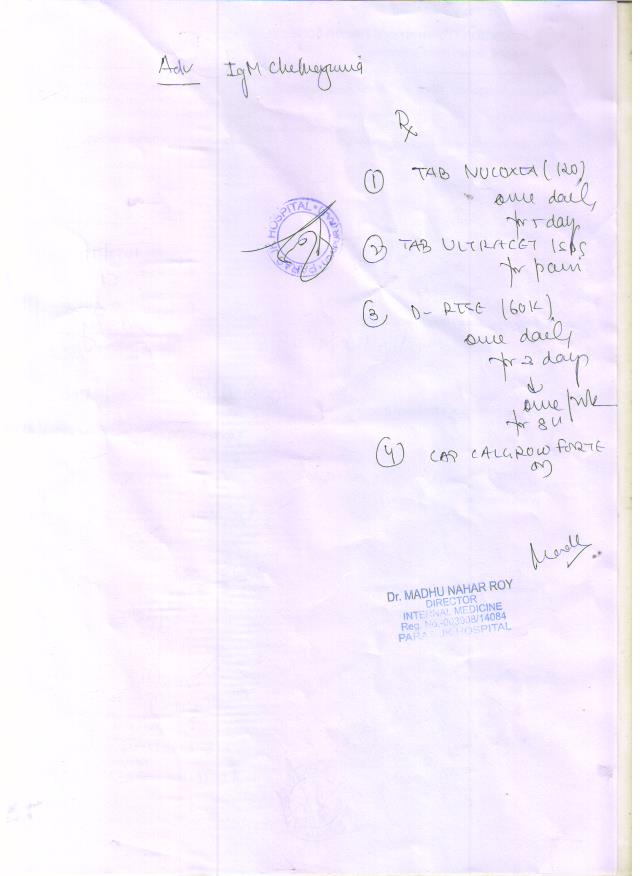 Adv IgM Chikungunia
Rx
① TAB NUCOXIA (120)
once daily
for 5 day
PARAS HOSPITAL
② TAB ULTRACET 1 SOS
for pain
③ D-RISE (60K)
once daily
for 3 day
↓
once/wk
for 8
④ CAP CALGROW FORTE
OD
Dr. MADHU NAHAR ROY
DIRECTOR
INTERNAL MEDICINE
Reg. No.-003008/14084
HOSPITAL